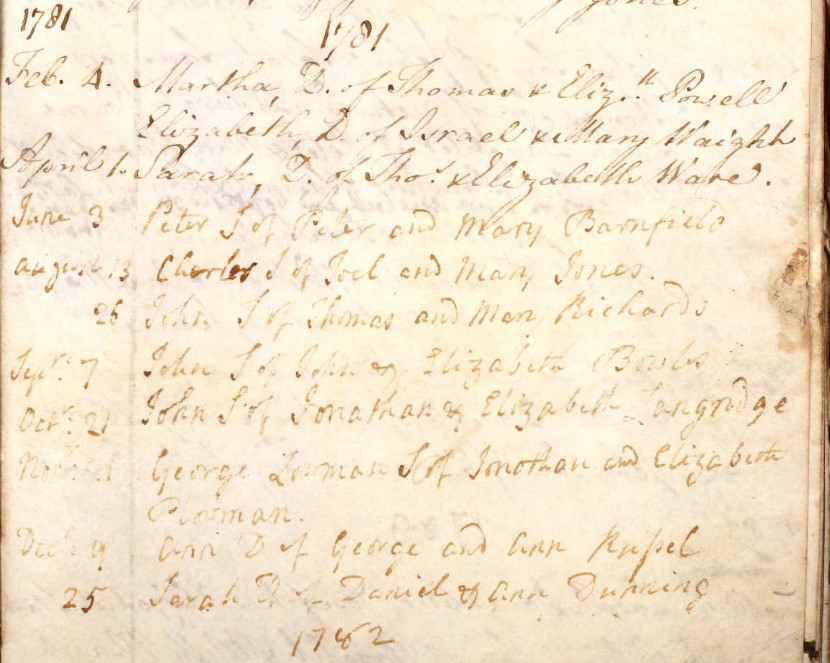 Jones.
1781
1781
Feb. 4. Martha, D. of Thomas & Eliz.th Powell
Elizabeth, D. of Israel & Mary Waight
April 1. Sarah, D. of Tho.s & Elizabeth Ware.
June 3 Peter S of Peter and Mary Barnfield
august 13 Charles S of Joel and Mary Jones.
26 John S of Thomas and Mary Richards
Sept.r 7 John S of John & Elizabeth Bowls
Oct.r 21 John S of Jonathan & Elizabeth Langridge
George S of Jonathan and Elizabeth
Plowman.
Dec.r 9 Ann D of George and Ann Russel
25 Sarah D of Daniel & Ann Dunning
1782